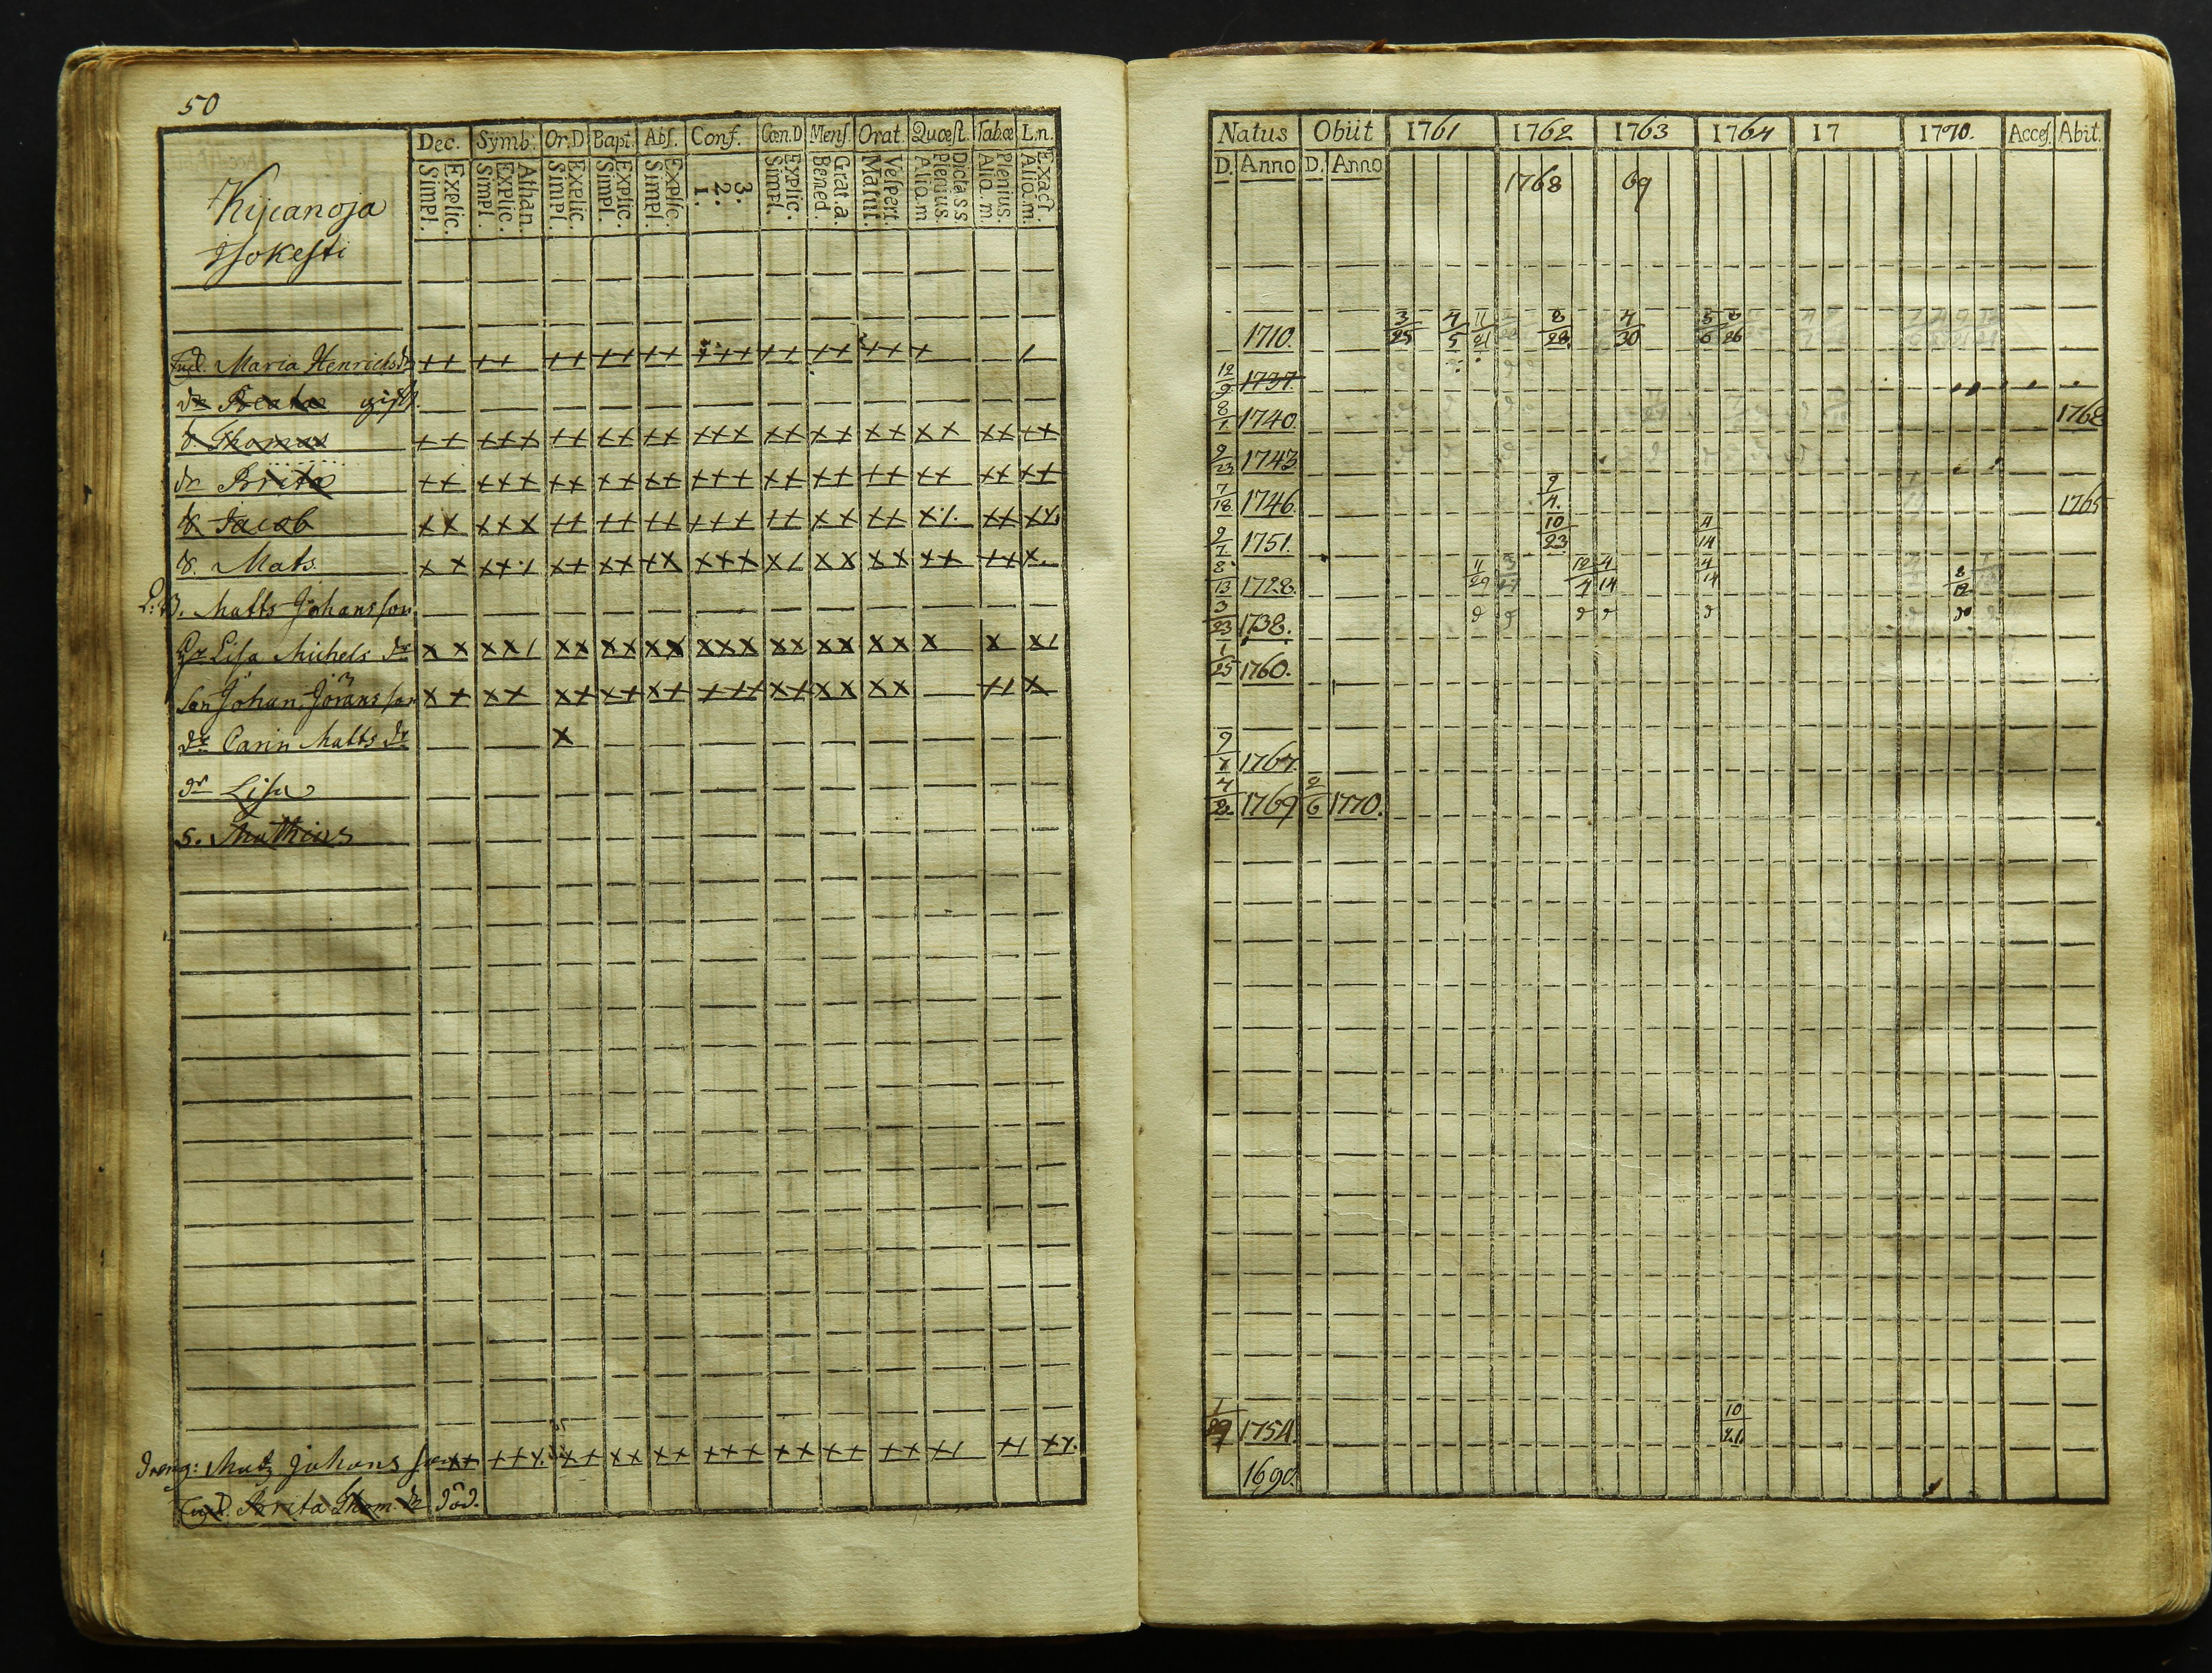 50
Dec. Symb. Or.D Bapt. Abs. Conf. Cœn.D Mens. Orat. Quæst. Tab.œ L.n.
Simpl. Explic. Simpl. Explic. Athan. Simpl. Explic. Simpl. Explic. Simpl. Explic. 1. 2. 3. Simpl. Explic. Bened. Grat.a. Matut. Vespert. Aliq.m Plenius. Dicta s s. Aliq.m. Plenius. Aliq.m. Exact.
Kijcanoja
Isokesti
Maria Henrichs dr
dr Beata gift
Thomas
dr Brita
Jacob
Mats
B. Matts Johansson
Lisa Michels dr
son Johan Jöransson
dr Carin Matts dr
dr Lisa
s. Mathias
dreng: Matz Johans son
Brita Thom. dr död.
Natus Obiit 1761 1762 1763 1764 17 1770. Acces. Abit.
D. Anno D. Anno
1768 69
1710. 3/25 4/5 11/21 8/28. 4/30
12/9 1737.
8/1 1740. 1768
9/23 1743
7/18 1746. 1765
9/7 1751. 10/23 4/14
8/13 1728. 11/29 12/4 4/14 4/14 8/12
3/23 1738.
1/25 1760.
9/7 1767.
4/2 1769 2/6 1770.
1754. 10/21.
1690.